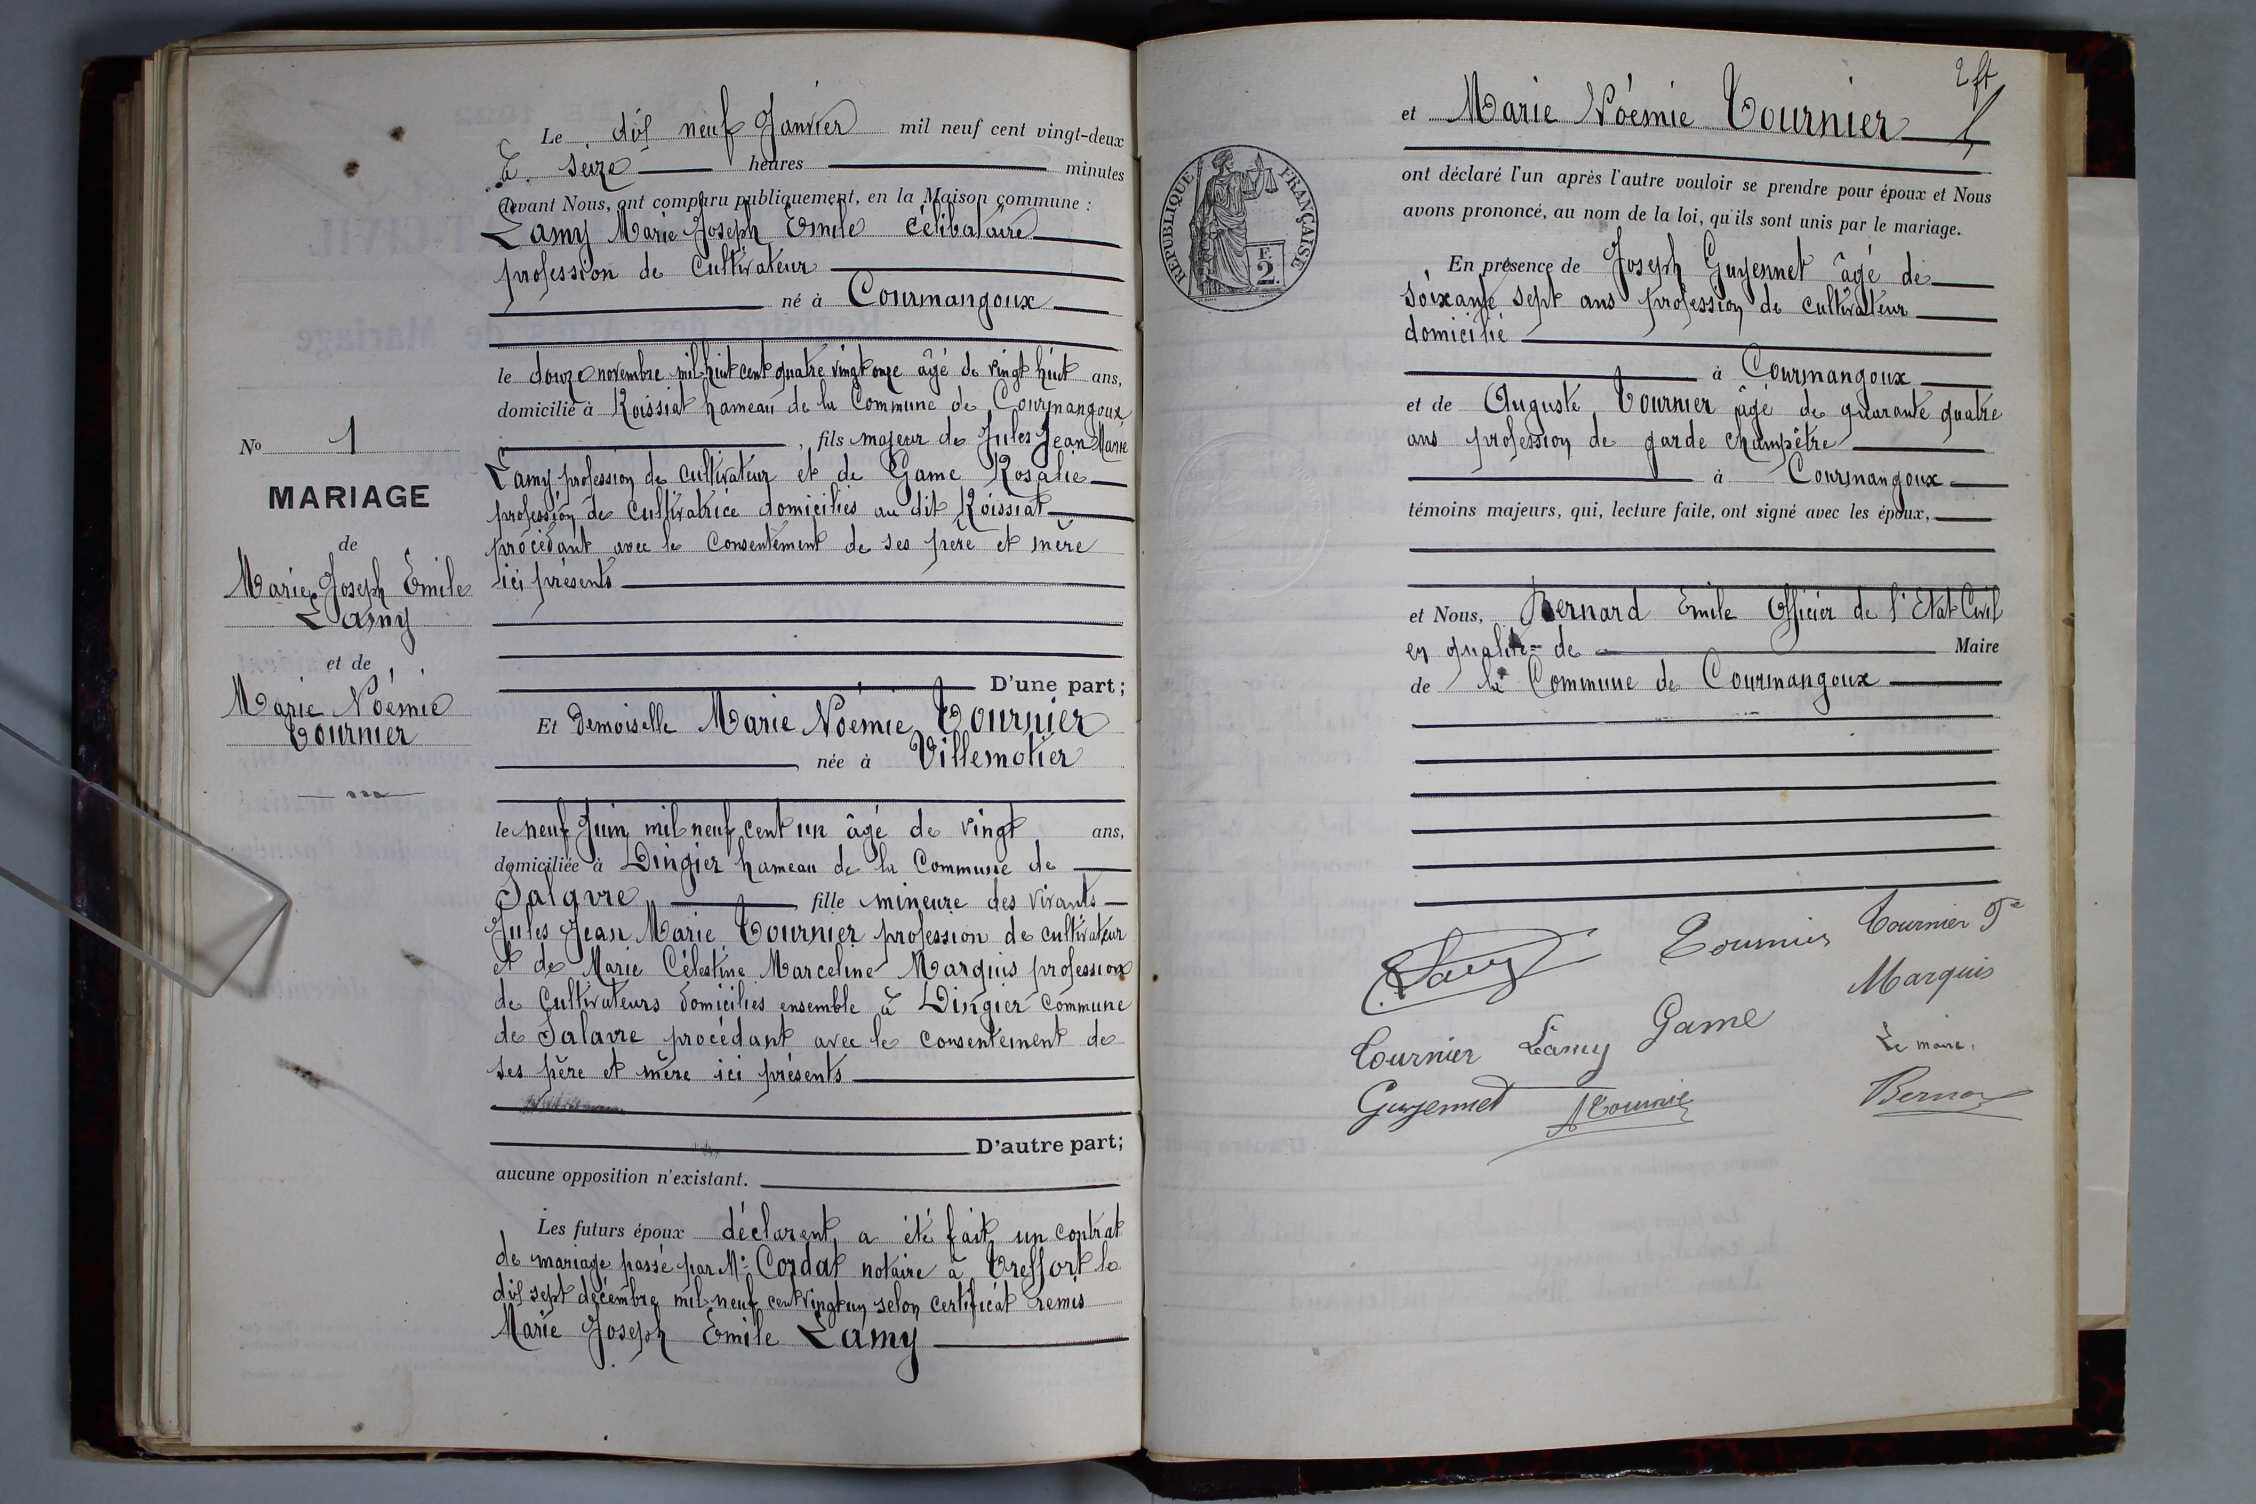 No 1
MARIAGE
de
Marie Joseph Emile
Lamy
et de
Marie Noémie
Tournier
Le dix neuf Janvier mil neuf cent vingt-deux
à seize heures minutes
devant Nous, ont comparu publiquement, en la Maison commune :
Lamy Marie Joseph Emile célibataire
profession de cultivateur
né à Courmangoux
le douze novembre mil huit cent quatre vingt onze âgé de vingt huit ans,
domicilié à Roissiat hameau de la Commune de Courmangoux
, fils majeur de Jules Jean Marie
Lamy profession de cultivateur et de Game Rosalie
profession de cultivatrice domiciliés au dit Roissiat
procédant avec le consentement de ses père et mère
ici présents
D'une part;
Et Demoiselle Marie Noémie Tournier
née à Villemotier
le neuf Juin mil neuf cent un âgé de vingt ans,
domiciliée à Dingier hameau de la Commune de
Salavre fille mineure des vivants
Jules Jean Marie Tournier profession de cultivateur
et de Marie Célestine Marceline Marquis profession
de Cultivateurs domiciliés ensemble à Dingier commune
de Salavre procédant avec le consentement de
ses père et mère ici présents
D'autre part;
aucune opposition n'existant.
Les futurs époux déclarent a été fait un contrat
de mariage passé par Me Cordat notaire à Treffort le
dix sept décembre mil neuf cent vingt un selon certificat remis
Marie Joseph Emile Lamy
et Marie Noémie Tournier
ont déclaré l'un après l'autre vouloir se prendre pour époux et Nous
avons prononcé, au nom de la loi, qu'ils sont unis par le mariage.
RÉPUBLIQUE FRANÇAISE
F.
2.
En présence de Joseph Guyennet âgé de
soixante sept ans profession de cultivateur
domicilié
à Courmangoux
et de Auguste Tournier âgé de quarante quatre
ans profession de garde champêtre
à Courmangoux
témoins majeurs, qui, lecture faite, ont signé avec les époux,
et Nous, Bernard Emile Officier de l'Etat Civil
en qualité de Maire
de la Commune de Courmangoux
Lamy Tournier Tournier
Marquis
Tournier Lamy Game
Le maire,
Guyennet A Tournier Bernard